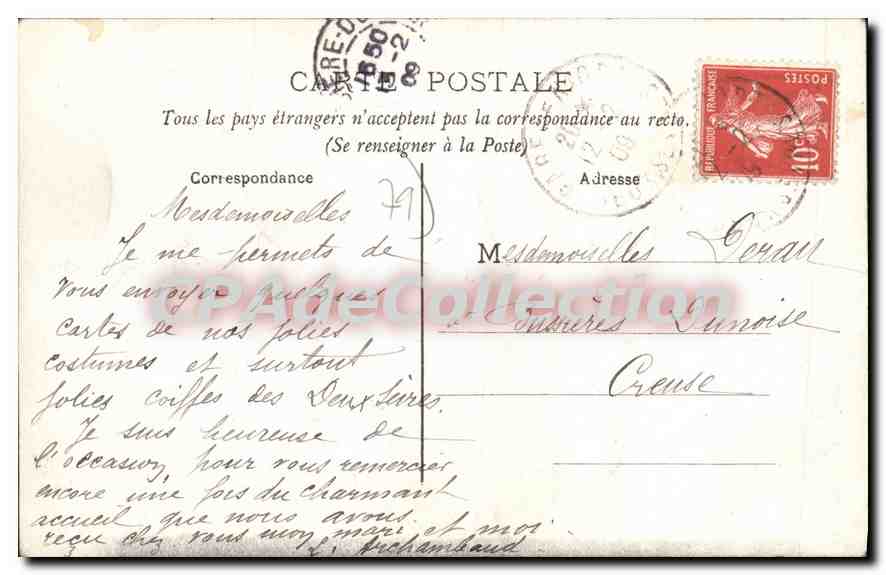 CARTE POSTALE
Tous les pays étrangers n'acceptent pas la correspondance au recto.
(Se renseigner à la Poste)
Correspondance
Adresse
RÉPUBLIQUE FRANÇAISE
POSTES
10c
79
Mesdemoiselles
Je me permets de
vous envoyer quelques
cartes de nos jolies
costumes et surtout
jolies coiffes des Deux Sèvres.
Je suis heureuse de
l'occasion pour vous remercier
encore une fois du charmant
accueil que nous avons
reçu chez vous mon mari et moi.
Archambaud
Mesdemoiselles
à Dunoise
Creuse
CPAdeCollection